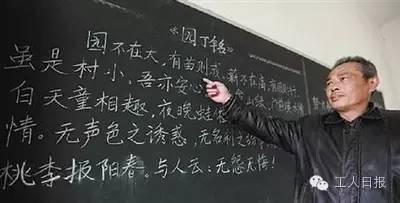 《园丁铭》
园不在大,有苗则成。薪不在高,
虽是村小、吾亦安心
白天童相趣,夜晚蛙
情。无声色之诱惑,无名利之
桃李报阳春。与人云:无怨无悔!
工人日报